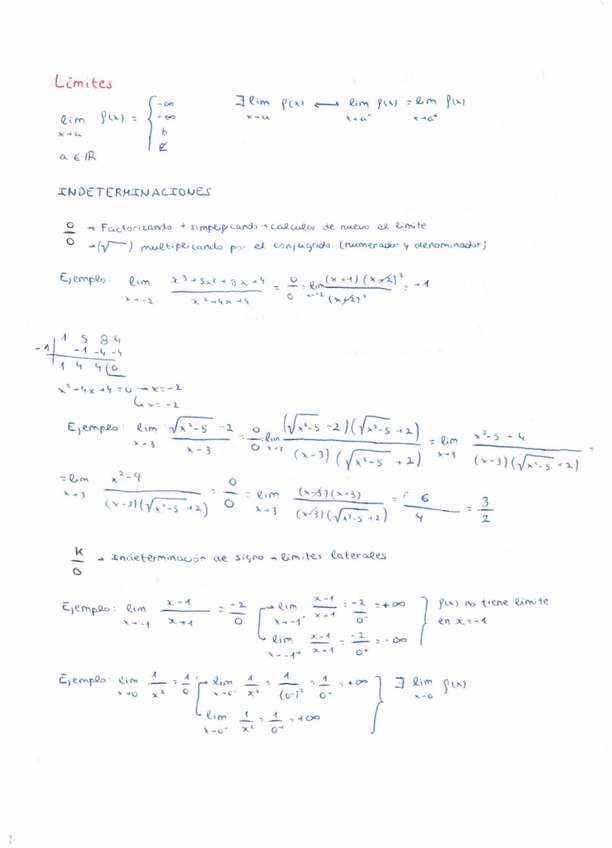 Límites
lim x→a f(x) = { -∞ +∞ b ∄
∃ lim x→a f(x) ⟷ lim x→a⁻ f(x) = lim x→a⁺ f(x)
a ∈ ℝ
INDETERMINACIONES
0/0 → Factorizando + simplificando → calcular de nuevo el límite
→ (√ ) multiplicando por el conjugado (numerador y denominador)
Ejemplo: lim x→-2 (x³+5x²+8x+4)/(x²+4x+4) = 0/0 = lim x→-2 (x+1)(x+2)²/(x+2)² = -1
1 5 8 4
-1 | -1 -4 -4
1 4 4 (0
x²+4x+4=0 → x=-2
↳ x=-2
Ejemplo: lim x→3 (√(x²-5) -2)/(x-3) = 0/0 = lim x→3 (√(x²-5) -2)(√(x²-5) +2)/((x-3)(√(x²-5) +2)) = lim x→3 (x²-5-4)/((x-3)(√(x²-5) +2)) =
= lim x→3 (x²-9)/((x-3)(√(x²-5) +2)) = 0/0 = lim x→3 (x-3)(x+3)/((x-3)(√(x²-5) +2)) = 6/4 = 3/2
K/0 → Indeterminación de signo → límites laterales
Ejemplo: lim x→-1 (x-1)/(x+1) = -2/0 → lim x→-1⁻ (x-1)/(x+1) = -2/0⁻ = +∞ } f(x) no tiene límite
↳ lim x→-1⁺ (x-1)/(x+1) = -2/0⁺ = -∞ en x=-1
Ejemplo: lim x→0 1/x² = 1/0 → lim x→0⁻ 1/x² = 1/(0⁻)² = 1/0⁺ = +∞ } ∃ lim x→0 f(x)
↳ lim x→0⁺ 1/x² = 1/0⁺ = +∞